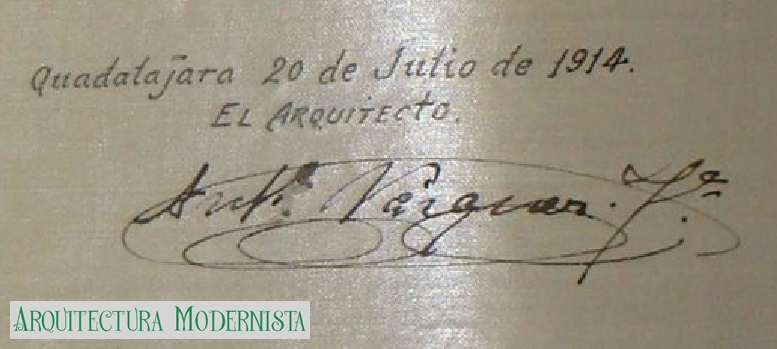 Guadalajara 20 de Julio de 1914.
EL ARQUITECTO.
Antº. Vazquez.
ARQUITECTURA MODERNISTA